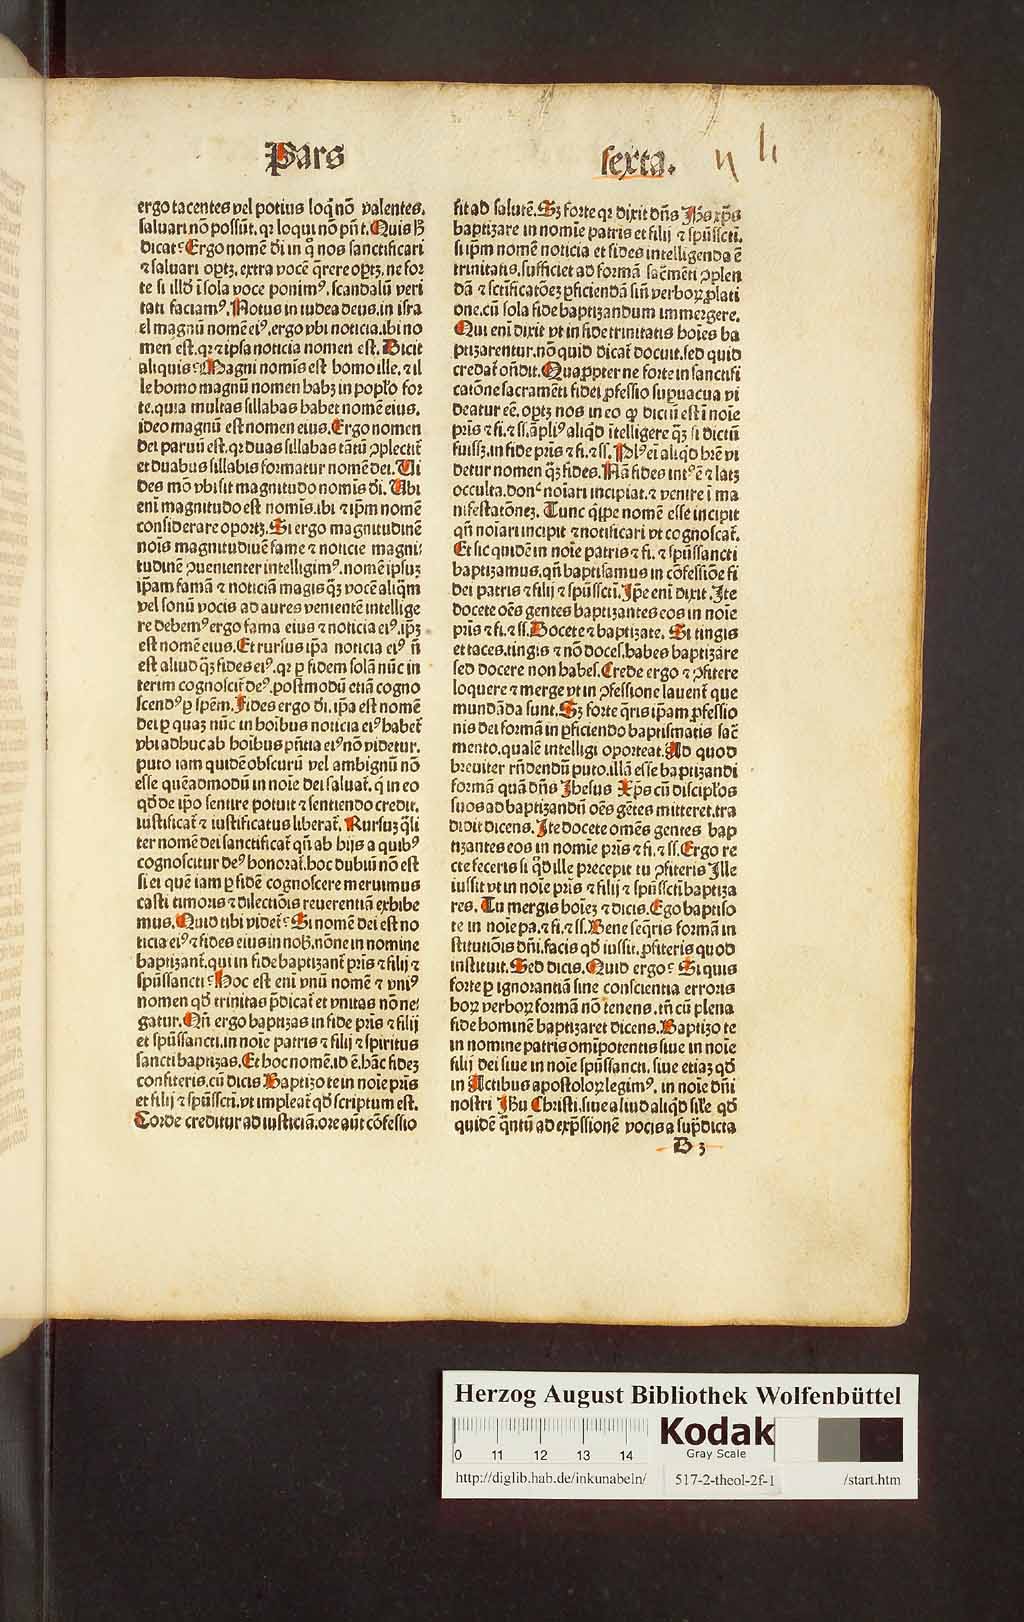 Pars
sexta.
ergo tacentes vel potius loqͥ nō valentes.
saluari nō possūt. qꝛ loqui nō pn̄t. Quis h̄
dicat? Ergo nomē dī in qͦ nos sanctificari
⁊ saluari oꝑtꝫ. extra vocē q̄rere oꝑtꝫ. ne for
te si illd̄ ī sola voce ponimꝰ. scandalū veri
tati faciamꝰ. Notus in iudea deus. in isra
el magnū nomē eiꝰ. ergo vbi noticia. ibi no
men est. qꝛ ⁊ ipsa noticia nomen est. Dicit
aliquis. Magni nomīs est homo ille. ⁊ il
le homo magnū nomen habꝫ in popl̄o for
te. quia multas sillabas habet nomē eius.
ideo magnū est nomen eius. Ergo nomen
dei paruū est. qꝛ duas sillabas tātū ꝯplectit̄
et duabus sillabis formatur nomē dei. Ui
des mō vbi sit magnitudo nomīs dī. Ubi
enī magnitudo est nomīs. ibi ⁊ ip̄m nomē
considerare oportꝫ. Si ergo magnitudinē
noīs magnitudinē fame ⁊ noticie magni
tudinē ꝯuenienter intelligimꝰ. nomē ipsuꝫ
ip̄am famā ⁊ noticiā magis qꝫ vocē aliqͣm
vel sonū vocis ad aures venientē intellige
re debemꝰ ergo fama eius ⁊ noticia eiꝰ. ip̄ꝫ
est nomē eius. Et rursus ip̄a noticia eiꝰ n̄
est aliud qꝫ fides eiꝰ. qꝛ ꝑ fidem solā nūc in
terim cognoscit̄ deꝰ. postmodū etiā cogno
scendꝰ ꝑ spēm. Fides ergo dī. ip̄a est nomē
dei ꝑ quaꝫ nūc in hoībus noticia eiꝰ habet̄
vbi adhuc ab hoībus pn̄tia eiꝰ nō videtur.
puto iam quidē obscurū vel ambiguū nō
esse quēadmodū in noīe dei saluat̄. qͥ in eo
qd̄ de ip̄o sentire potuit ⁊ sentiendo credit.
iustificat̄ ⁊ iustificatus liberat̄. Rursuꝫ qͣli
ter nomē dei sanctificat̄ qn̄ ab hijs a quibꝰ
cognoscitur deꝰ honorat̄. hoc dubiū nō est
si ei quē iam ꝑ fidē cognoscere meruimus
casti timoris ⁊ dilectiōis reuerentiā exhibe
mus. Quid tibi videt̄? Si nomē dei est no
ticia eiꝰ ⁊ fides eius in nob̄. nōne in nomine
baptizant̄. qui in fide baptizant̄ pr̄is ⁊ filij ⁊
spūssancti? Hoc est eni vnū nomē ⁊ vniꝰ
nomen qd̄ trinitas p̄dicat̄ et vnitas nō ne
gatur. Qn̄ ergo baptizas in fide pr̄is ⁊ filij
et spūssancti. in noīe patris ⁊ filij ⁊ spiritus
sancti baptizas. Et hoc nomē. id ē. hāc fideꝫ
confiteris. cū dicis Baptizo te in noīe pr̄is
et filij ⁊ spūssct̄i. vt impleat̄ qd̄ scriptum est.
Corde creditur ad iusticiā. ore aūt cōfessio
fit ad salutē. Sꝫ forte qꝛ dixit dn̄s Jhs̄ xp̄s
baptizare in nomīe patris et filij ⁊ spūssct̄i.
si ip̄m nomē noticia et fides intelligenda ē
trinitatis. sufficiet ad formā sac̄mēti ꝯplen
dā ⁊ sct̄ificatōeꝫ ꝑficiendā sin̄ verboꝝ ꝓlati
one. cū sola fide baptizandum immergere.
Qui eni dixit vt in fide trinitatis hoīes ba
ptizarentur. nō quid dicat̄ docuit. sed quid
credat̄ on̄dit. Quaꝓpter ne forte in sanctifi
catōne sacramēti fidei ꝓfessio suꝑuacua vi
deatur eē. oꝑtꝫ nos in eo qꝫ dictū est ī noīe
pr̄is ⁊ fi. ⁊ ss. āpliꝰ aliqd̄ ītelligere qꝫ si dictū
fuissꝫ. in fide pr̄is ⁊ fi. ⁊ ss. Plꝰ ei aliqd̄ hr̄e vi
detur nomen qꝫ fides. Nā fides intꝰ ē ⁊ latꝫ
occulta. donᶜ noīari incipiat. ⁊ venire ī ma
nifestatōneꝫ. Tunc qͥppe nomē esse incipit
qn̄ noīari incipit ⁊ notificari vt cognoscat̄.
Et sic quidē in noīe patris ⁊ fi. ⁊ spūssancti
baptizamus. qn̄ baptisamus in cōfessiōe fi
dei patris ⁊ filij ⁊ spūssct̄i. Ip̄e eni dixit. Ite
docete oēs gentes baptizantes eos in noīe
pr̄is ⁊ fi. ⁊ ss. Docete ⁊ baptizate. Si tingis
et taces. tingis ⁊ nō doces. habes baptizare
sed docere non habes. Crede ergo ⁊ ꝯfitere
loquere ⁊ merge vt in ꝯfessione lauent̄ que
mundāda sunt. Sꝫ forte q̄ris ip̄am ꝓfessio
nis dei formā in ꝑficiendo baptismatis sac̄
mento. qualē intelligi oporteat. Ad quod
breuiter rn̄dendū puto. illā esse baptizandi
formā quā dn̄s Jhesus Xp̄s cū discipl̄os
suos ad baptizandū oēs gētes mitteret. tra
didit dicens. Ite docete omēs gentes bap
tizantes eos in nomīe pr̄is ⁊ fi. ⁊ ss. Ergo re
cte feceris si qd̄ ille precepit tu ꝯfiteris Ille
iussit vt in noīe pr̄is ⁊ filij ⁊ spūssct̄i baptiza
res. Tu mergis hoīeꝫ ⁊ dicis. Ego baptiso
te in noīe pa. ⁊ fi. ⁊ ss. Bene seqͥris formā in
stitutiōis dn̄i. facis qd̄ iussit. ꝓfiteris quod
instituit. Sed dicis. Quid ergo? Si quis
forte ꝑ ignorantiā sine conscientia erroris
hoꝝ verboꝝ formā nō tenens. tn̄ cū plena
fide hominē baptizaret dicens. Baptizo te
in nomine patris omīpotentis siue in noīe
filij dei siue in noīe spūssancti. siue etiaꝫ qd̄
in Actibus apostoloꝝ legimꝰ. in noīe dn̄i
nostri Jhū Christi. siue aliud aliqd̄ sil̄e qd̄
quidē qͣntū ad exp̄ssionē vocis a sup̄dicta
B 3
Herzog August Bibliothek Wolfenbüttel
Kodak
Gray Scale
0 11 12 13 14
http://diglib.hab.de/inkunabeln/ 517-2-theol-2f-1 /start.htm